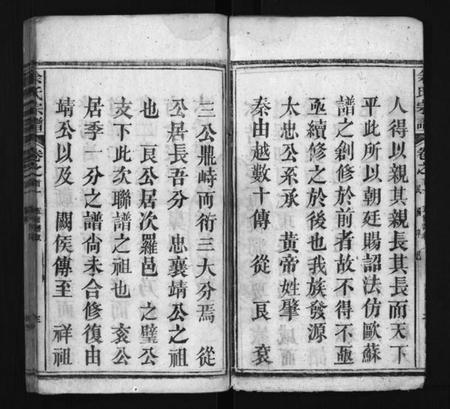 人得以親其親長其長而天下
平此所以朝廷賜詔法仿歐蘇
譜之創修於前者故不得不亟
亟續修之於後也我族發源
太忠公系承 黃帝姓肇
秦由越數十傳 從 良 袞
三公鼎峙而衍三大分焉 從
公居長吾分 忠襄靖公之祖
也 良公居次羅邑 之璧公
支下此次聯譜之祖也 袞公
居季一分之譜尙未合修復由
靖公以及 關侯傳至 祥祖
余氏宗譜
卷之首